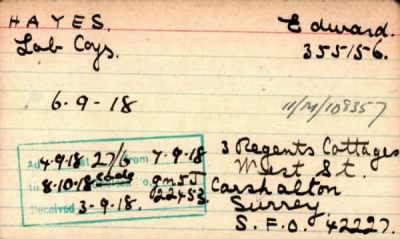 HAYES. Edward.
Lab Coys. 355156.
6-9-18 11/M/108357
4-9-18 27/6 from 7-9-18
to 8-10-18 code
Received 3-9-18. 22453.
3 Regents Cottages
West St.
Carshalton
Surrey
S.F.O. 42227.